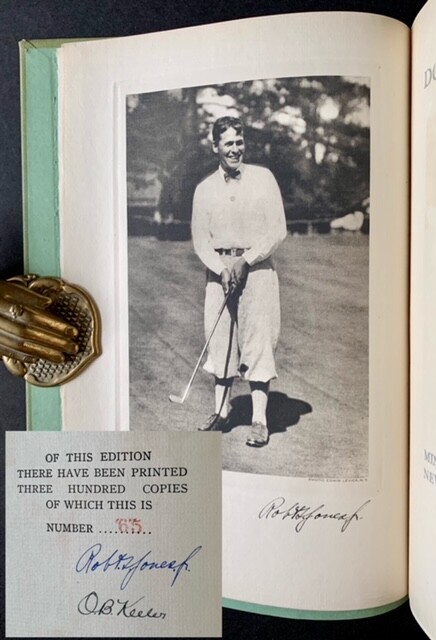 DO
MIN
NEW
PHOTO EDWIN LEVICK, N.Y.
Robt T Jones Jr.
OF THIS EDITION
THERE HAVE BEEN PRINTED
THREE HUNDRED COPIES
OF WHICH THIS IS
NUMBER ....65....
Robt T Jones Jr.
O.B. Keeler